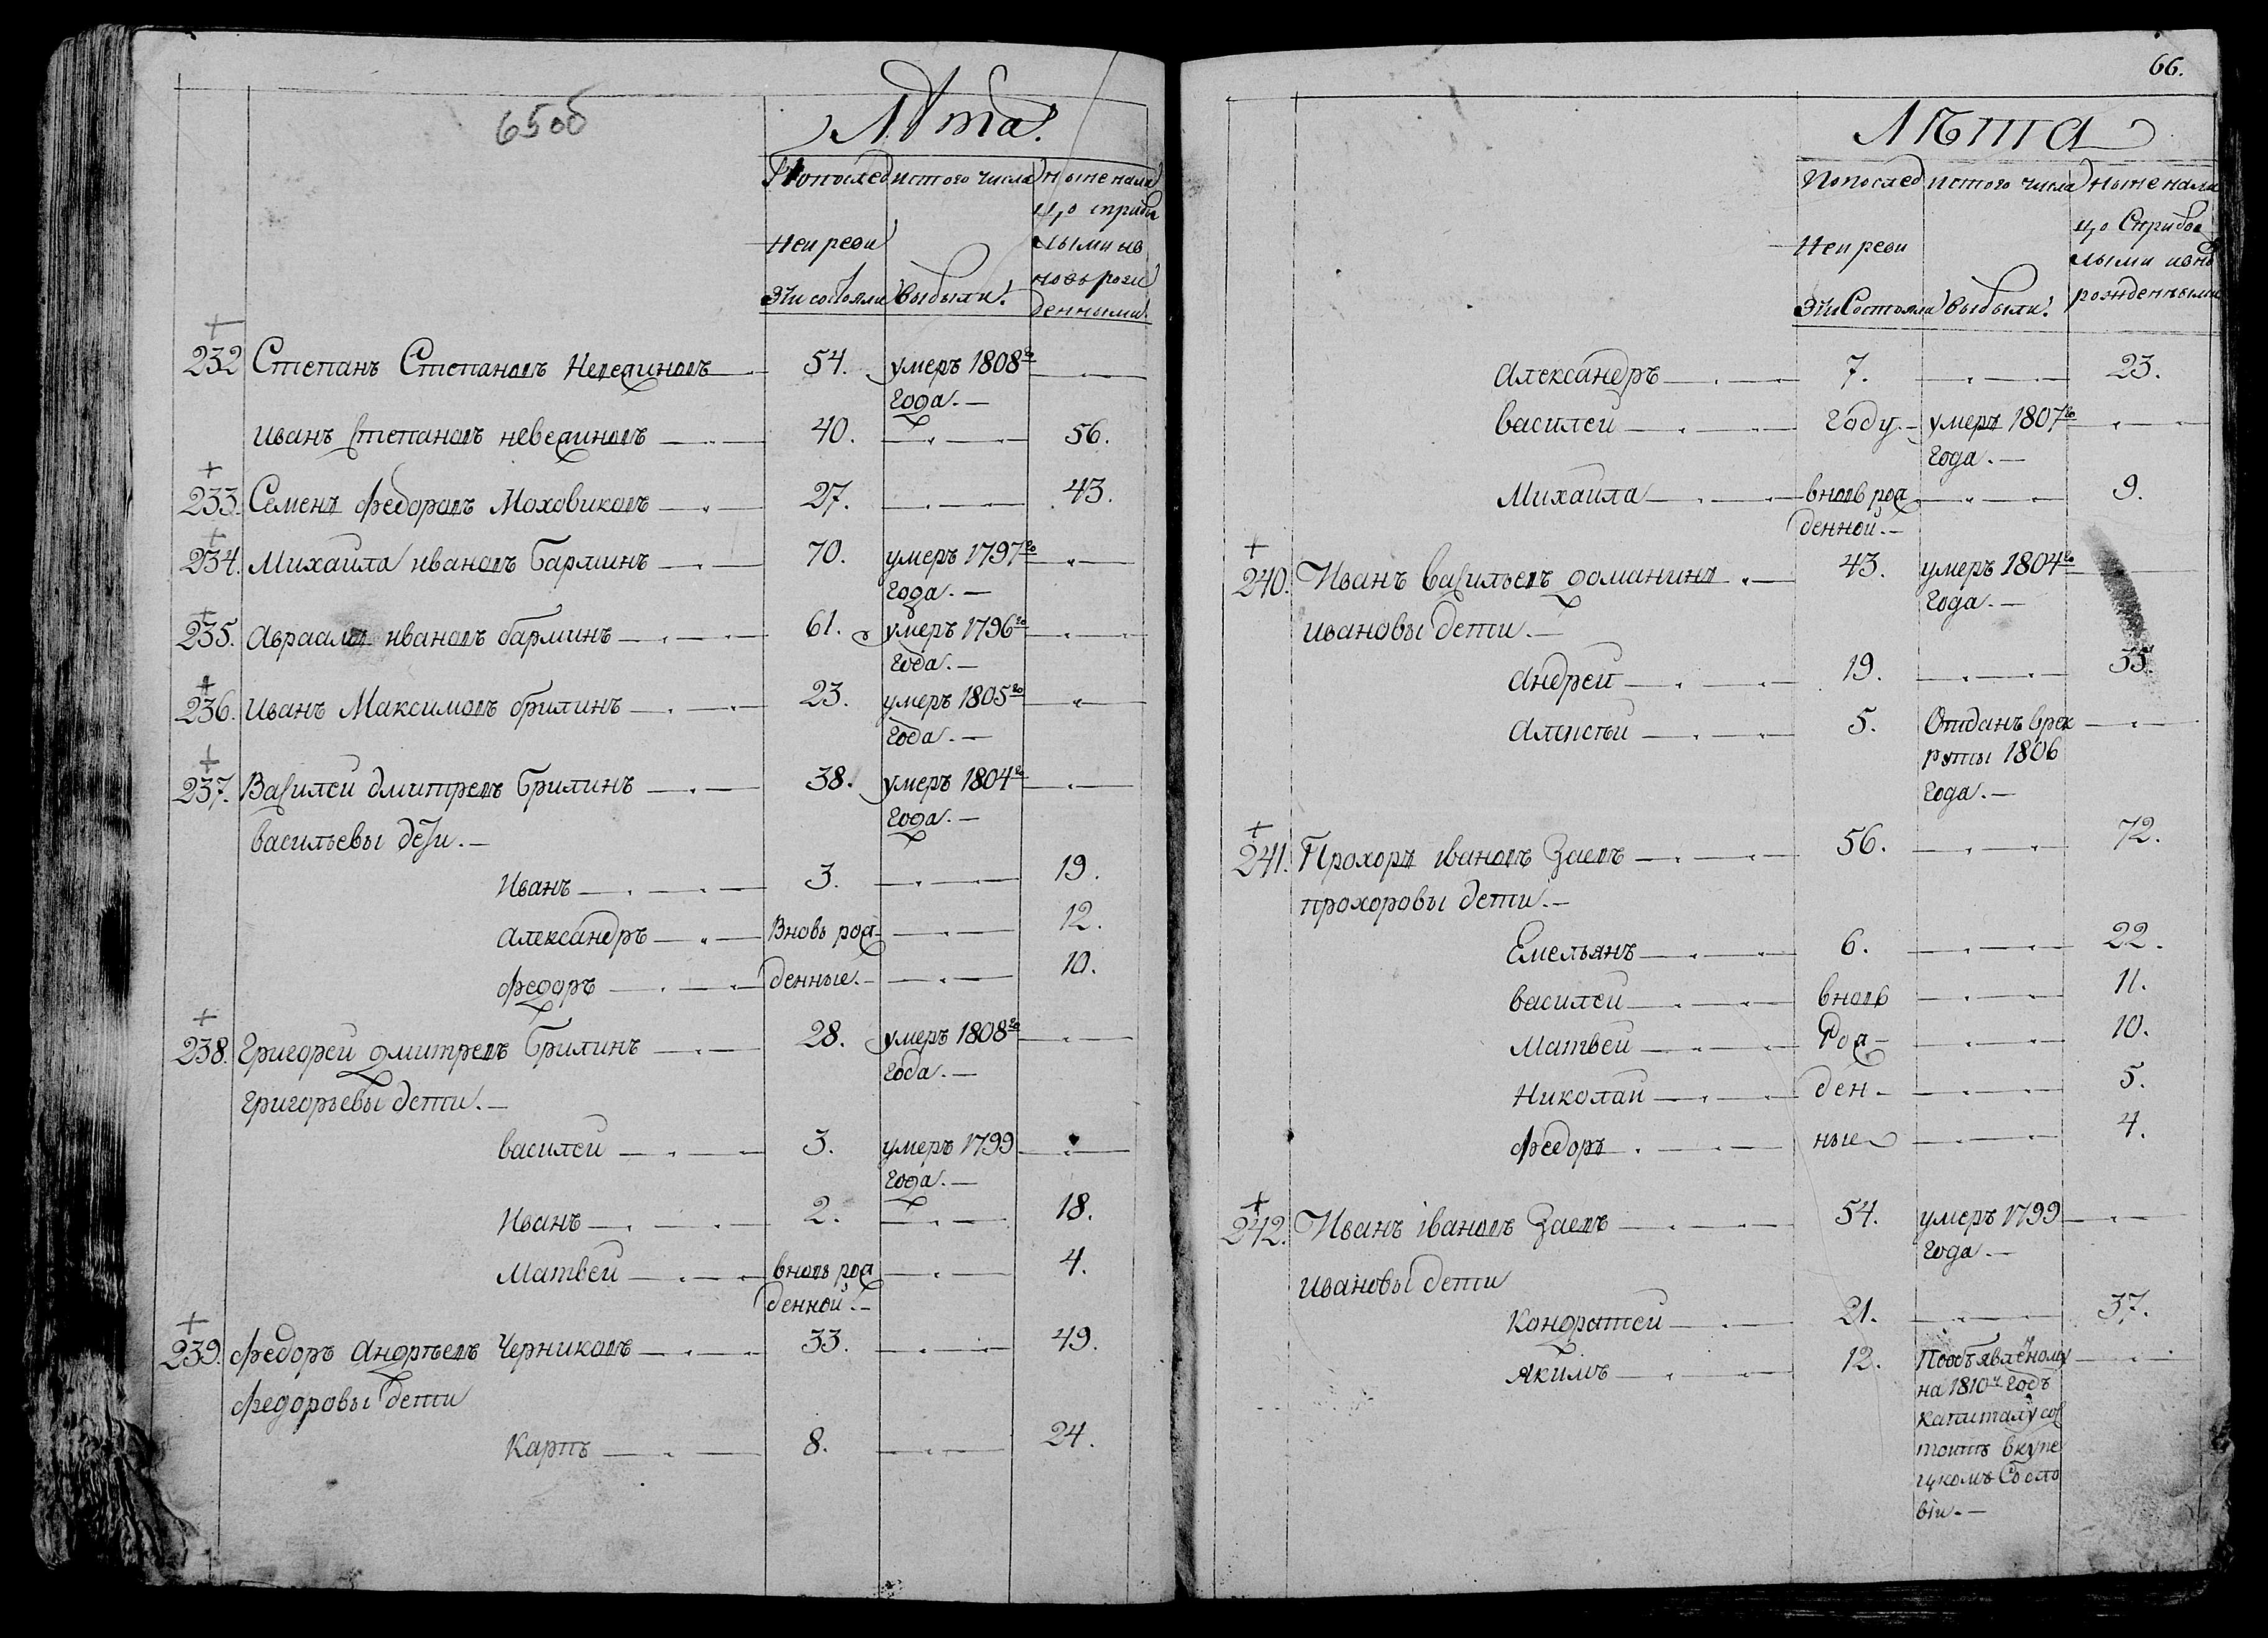 65об
Лѣта.
Попослед
ней реви
зіи состояли
истого числа
выбыли.
ныне нали
цо сприбы
лыми ыв
новь рож
денными.
232 Степанъ Степановъ Невединовъ 54. умеръ 1808го
года.
иванъ Степановъ невединовъ 40. 56.
233. Семенъ федоровъ Моховиковъ 27. 43.
234. Михаила ивановъ барминъ 70. умеръ 1797го
года.
235. авраамъ ивановъ барминъ 61. умеръ 1796го
года.
236. иванъ Максимовъ брилинъ 23. умеръ 1805го
года.
237. Василеи дмитревъ брилинъ 38. умеръ 1804го
года.
васильевы дети.
Иванъ 3. 19.
александръ Вновь рож 12.
федоръ денные. 10.
238. Григореи дмитревъ брилинъ 28. умеръ 1808го
года.
григорьевы дети.
василеи 3. умеръ 1799
года.
Иванъ 2. 18.
Матвеи вновь рож 4.
денной.
239. федоръ андреевъ Черниковъ 33. 49.
федоровы дети
Карпъ 8. 24.
66.
Лѣта
Попослед
ней реви
зіи Состояли
истого числа
выбыли.
ныне нали
цо Сприбы
лыми ивнь
рожденными
александръ 7. 23.
василеи году. умеръ 1807го
года.
Михаила вновь рож 9.
денной.
240. Иванъ васильевъ доманинъ 43. умеръ 1804го
года.
ивановы дети.
андреи 19. 35.
алексеи 5. Отданъ врек
руты 1806
года.
241. Прохоръ ивановъ Заевъ 56. 72.
прохоровы дети.
Емельянъ 6. 22.
василеи вновь 11.
Матвеи Рож 10.
Николаи ден 5.
федоръ ные 4.
242. Иванъ ивановъ Заевъ 54. умеръ 1799
года.
ивановы дети
Кондратеи 21. 37.
якимъ 12. Пообъявленому
на 1810й годъ
капиталу сос
тоитъ вкупе
цкомъ Сосло
віи.